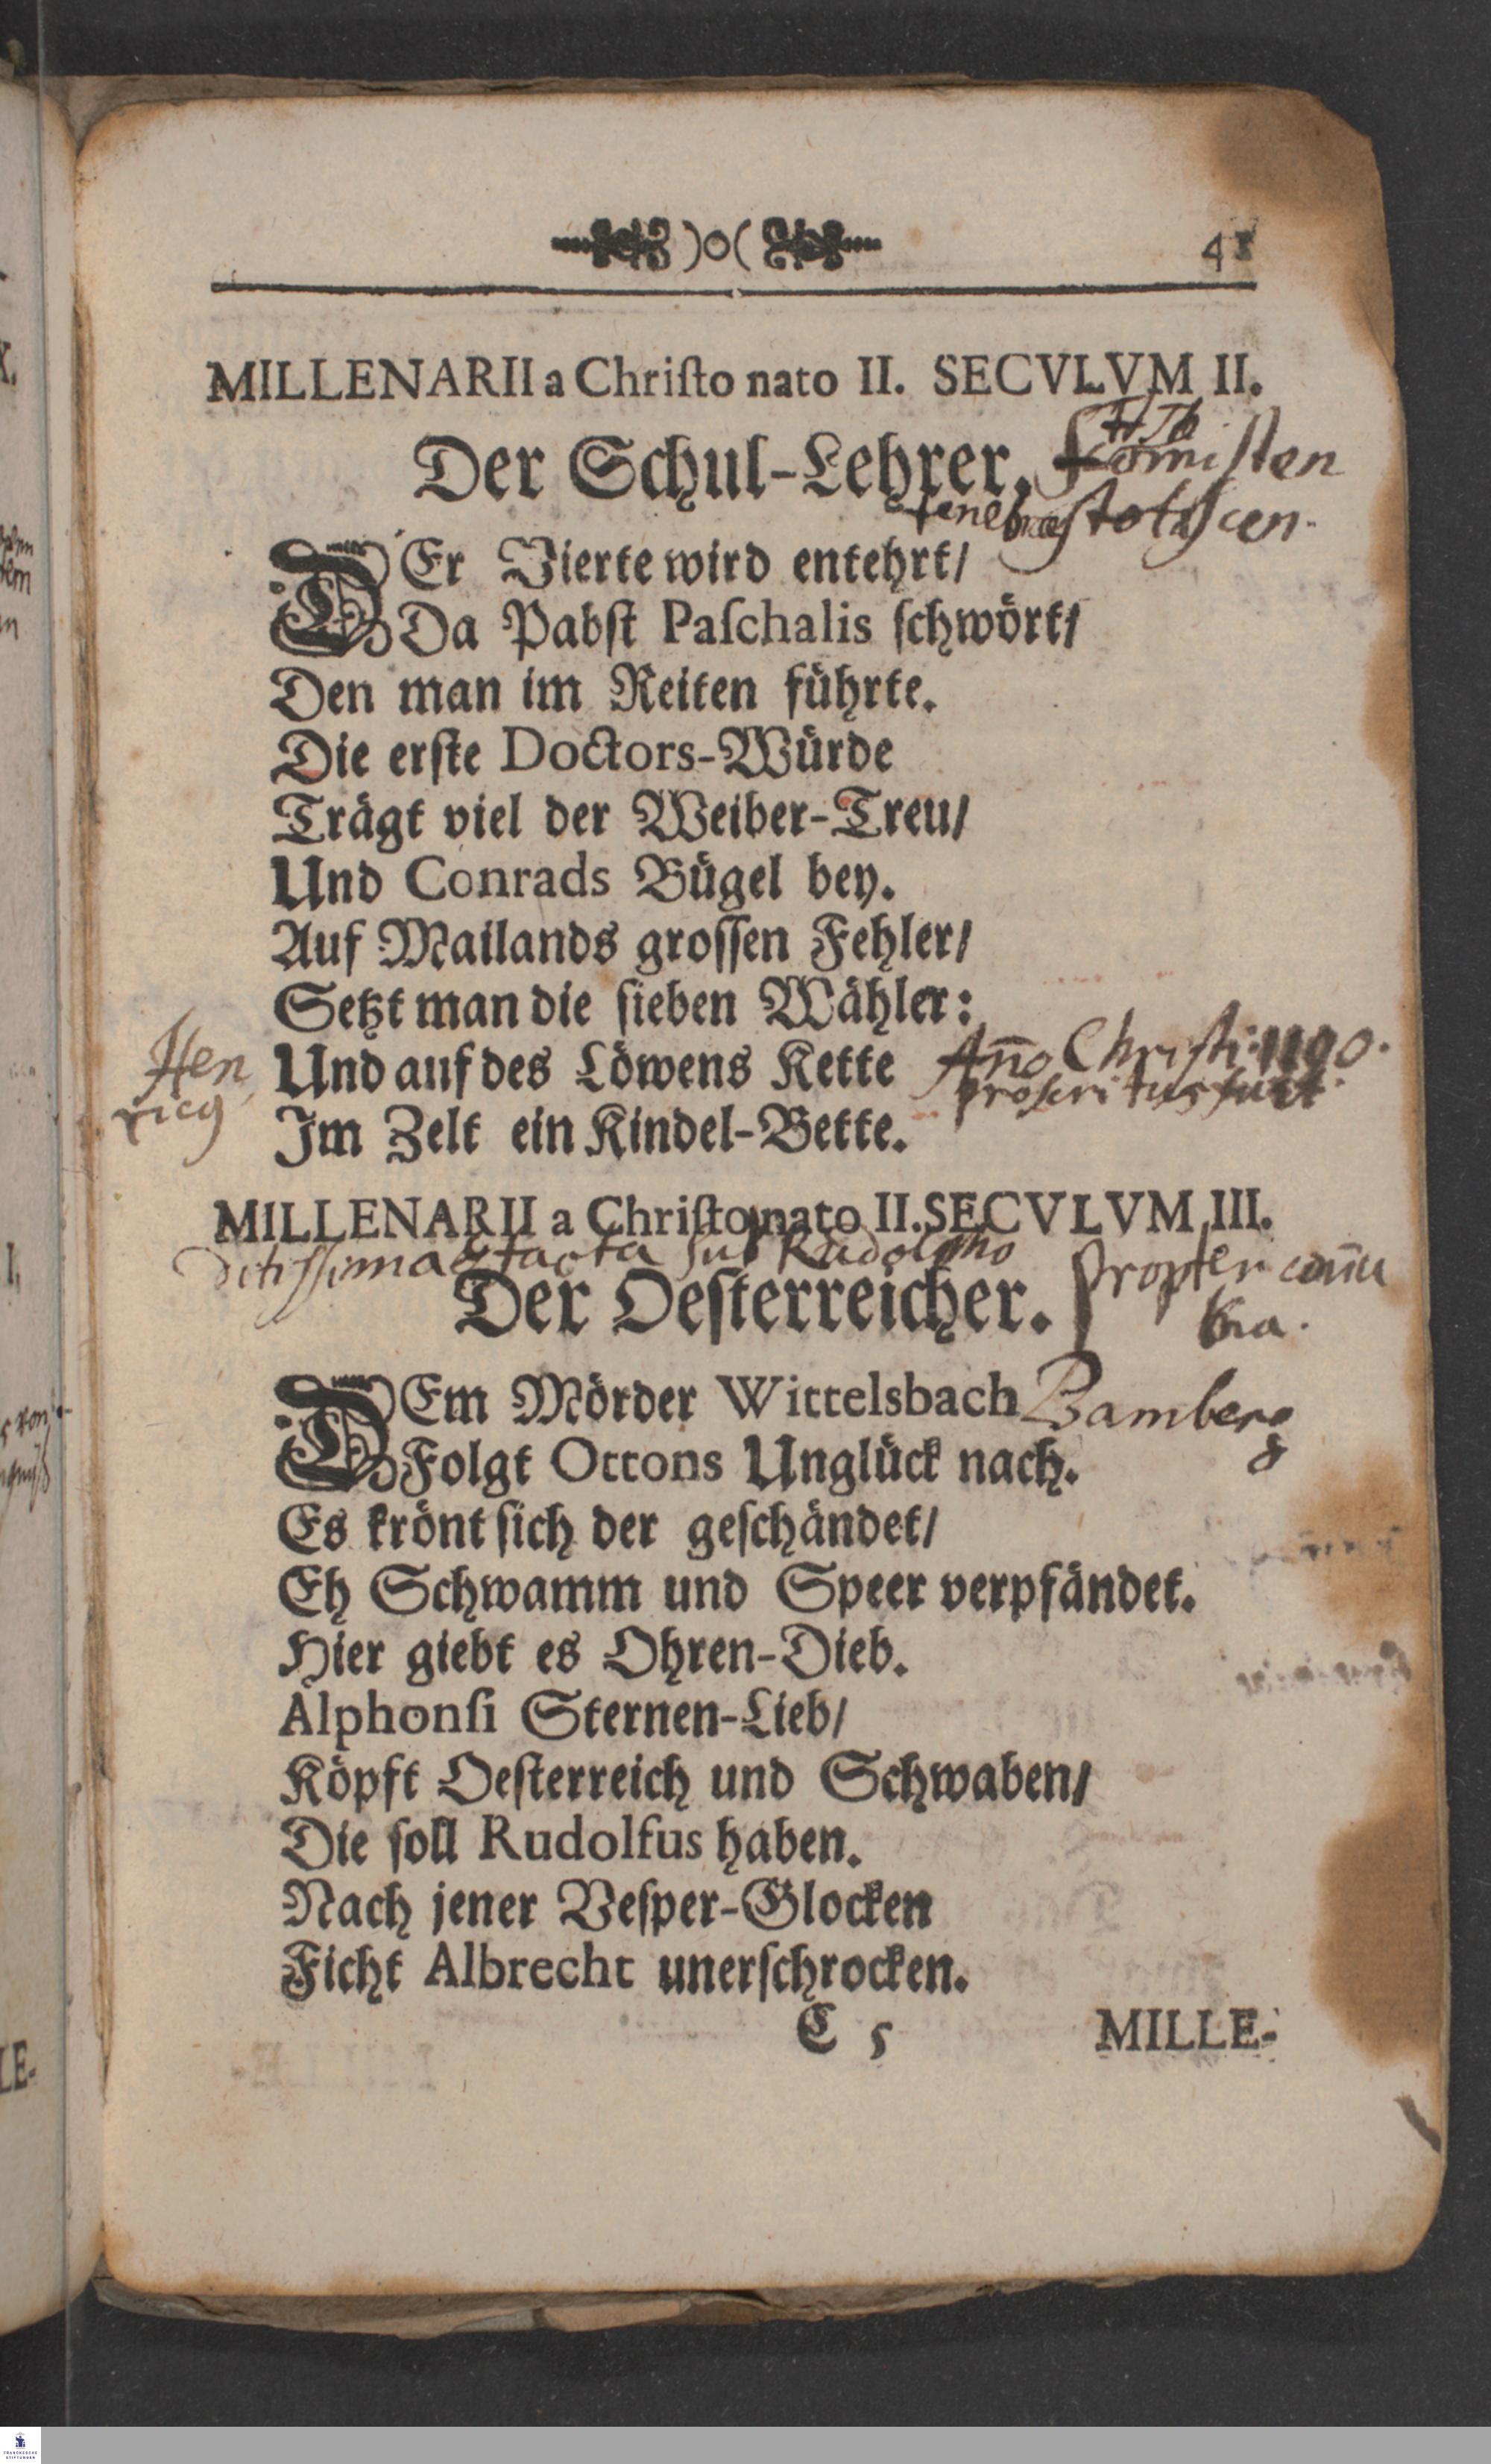 )o( 4
MILLENARII a Chriſto nato II. SECVLVM II.
Der Schul-Lehrer.
DEr Vierte wird entehrt/
Da Pabſt Paſchalis ſchwört/
Den man im Reiten führte.
Die erſte Doctors-Würde
Trägt viel der Weiber-Treu/
Und Conrads Bügel bey.
Auf Mailands groſſen Fehler/
Setzt man die ſieben Wähler:
Hen
ricg
Und auf des Löwens Kette Año Christi 1190.
proscritus fuit.
Im Zelt ein Kindel-Bette.
MILLENARII a Chriſto nato II. SECVLVM III.
Ditissima facta sub Rudolpho
Der Oeſterreicher. propter coñu
bia.
DEm Mörder Wittelsbach Bamberg
Folgt Ottons Unglück nach.
Es krönt ſich der geſchändet/
Eh Schwamm und Speer verpfändet.
Hier giebt es Ohren-Dieb.
Alphonſi Sternen-Lieb/
Köpft Oeſterreich und Schwaben/
Die ſoll Rudolfus haben.
Nach jener Veſper-Glocken
Ficht Albrecht unerſchrocken.
C 5 MILLE-